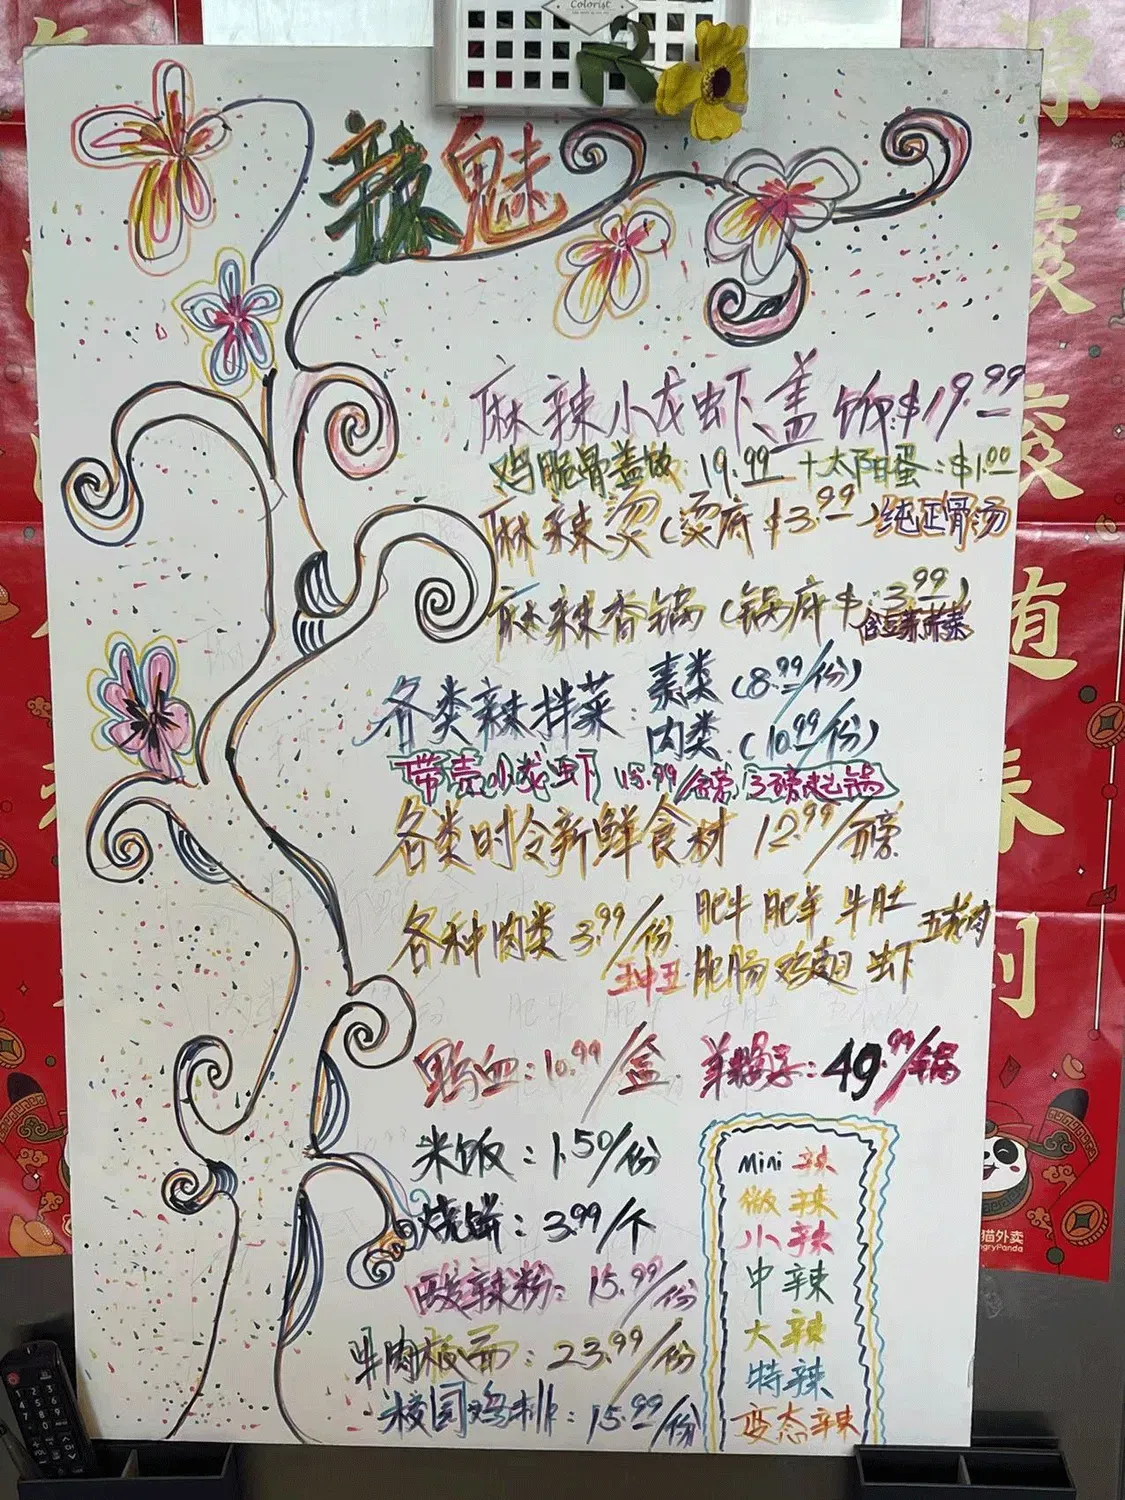 Colorist
辣魅
麻辣小龙虾盖饭$19.99
鸡脆骨盖饭:19.99 +太阳蛋:$1.00
麻辣烫(烫底$3.99)纯正骨汤
麻辣香锅(锅底$:3.99)
各类辣拌菜:素类(8.99/份)
肉类(10.99/份)
带壳小龙虾 15.99/磅 3磅起锅
各类时令新鲜食材 12.99/磅
各种肉类3.99/份 肥牛 肥羊 牛肚 五花肉
肥肠 鸡翅 虾
鸭血:10.99/盒
羊蝎子:49.99/锅
米饭:1.50/份
烧饼:3.99/个
酸辣粉:15.99/份
牛肉板面:23.99/份
校园鸡排:15.99/份
Mini 辣
微辣
小辣
中辣
大辣
特辣
变态辣
源
滚
滚
随
春
到
猫外卖
ngryPanda